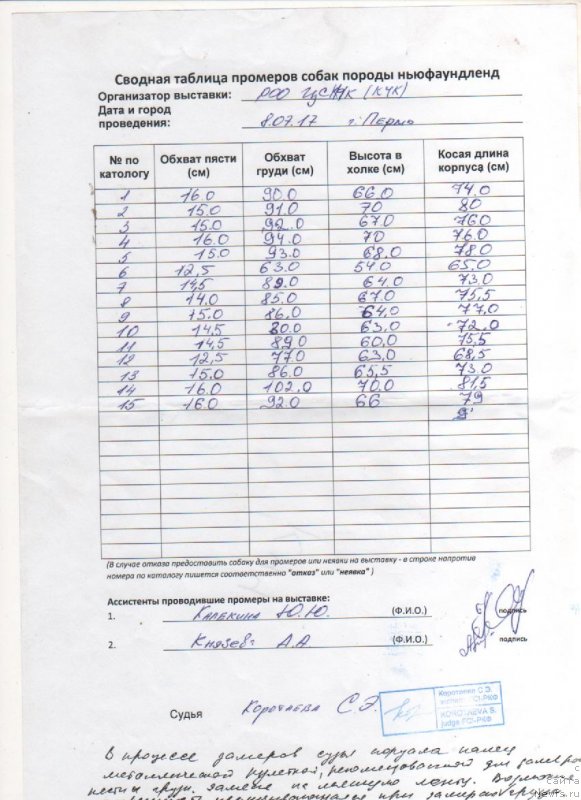 Сводная таблица промеров собак породы ньюфаундленд
Организатор выставки: РОО (КЧК)
Дата и город
проведения: 8.07.17 г. Пермь
№ по каталогу Обхват пясти (см) Обхват груди (см) Высота в холке (см) Косая длина корпуса (см)
1 16.0 90.0 66.0 74.0
2 15.0 91.0 70 80
3 15.0 92.0 67.0 76.0
4 16.0 94.0 70 76.0
5 15.0 93.0 68.0 78.0
6 12,5 63.0 54.0 65.0
7 14,5 89.0 64.0 73,0
8 14.0 85.0 67.0 75,5
9 15.0 86.0 64.0 77,0
10 14,5 80.0 63.0 72.0
11 14,5 89.0 60.0 75,5
12 12,5 77.0 63,0 68,5
13 15.0 86.0 65,5 73.0
14 16.0 102.0 70.0 81,5
15 16.0 92.0 66 79
(В случае отказа предоставить собаку для промеров или неявки на выставку - в строке напротив
номера по каталогу пишется соответственно "отказ" или "неявка")
Ассистенты проводившие промеры на выставке:
1. Калекина Ю.Ю. (Ф.И.О.) подпись
2. Князев А.А. (Ф.И.О.) подпись
Судья Коротаева С.Э.
Коротаева С.Э.
FCI-РКФ
KOROTAEVA S.
judge FCI-РКФ
В процессе замеров судья порвала палец
металлической рулеткой, рекомендованной для замеров
пясти и груди.